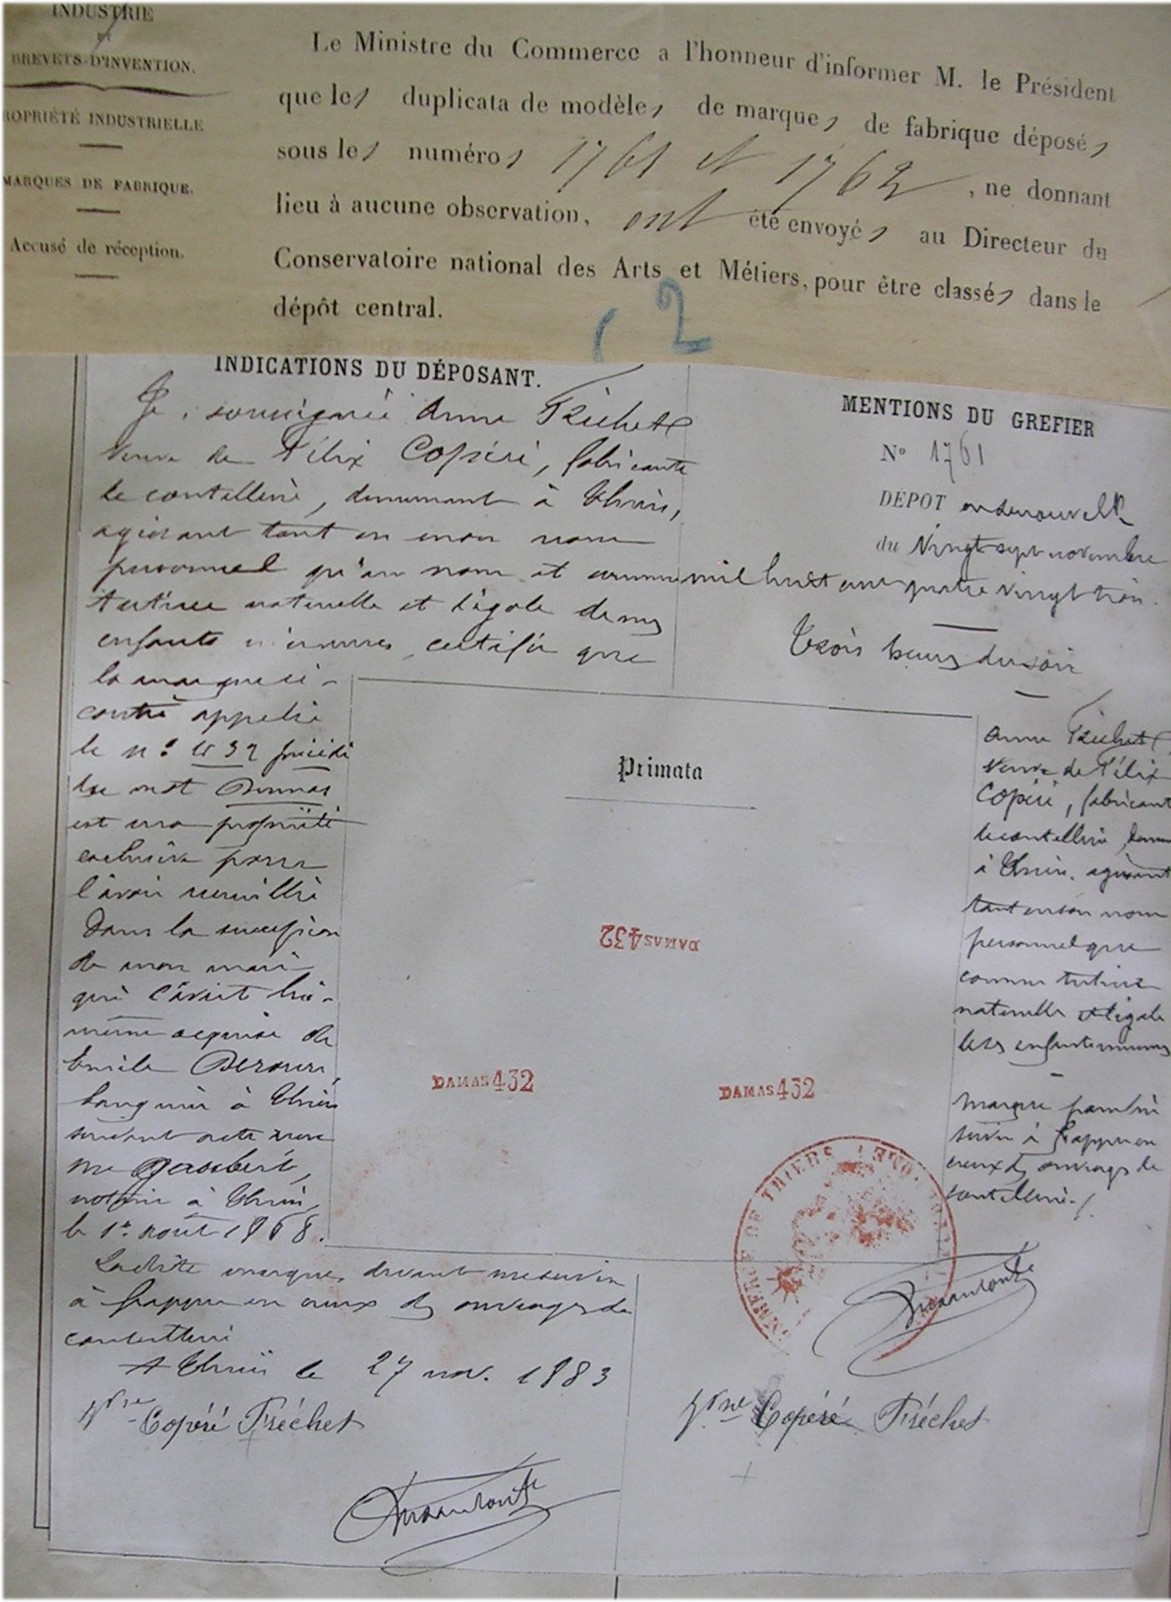 INDUSTRIE
ET
BREVETS D'INVENTION.
PROPRIÉTÉ INDUSTRIELLE
MARQUES DE FABRIQUE.
Accusé de réception.
Le Ministre du Commerce a l'honneur d'informer M. le Président
que les duplicata de modèles de marques de fabrique déposés
sous les numéros 1761 et 1762, ne donnant
lieu à aucune observation, ont été envoyés au Directeur du
Conservatoire national des Arts et Métiers, pour être classés dans le
dépôt central.
2
INDICATIONS DU DÉPOSANT.
Je, soussignée Anne Fréchet
veuve de Félix Copéré, fabricante
de coutellerie, demeurant à Thiers,
agissant tant en mon nom
personnel qu'au nom et comme
tutrice naturelle et légale de mes
enfants mineurs, certifie que
la marque ci-
contre appelée
le n° 432 précédé
du mot Damas
est une propriété
exclusive pour
l'avoir recueillie
dans la succession
de mon mari
qui l'avait lui-
même acquise de
à Thiers
suivant acte reçu
Me
notaire à Thiers,
le 1er août 1868.
Ladite marque devant me servir
à frapper en creux des ouvrages de
coutellerie
A Thiers le 27 nov. 1883
Vve Copéré Fréchet
MENTIONS DU GREFIER
N° 1761
DÉPOT
du Vingt-sept novembre
mil huit cent quatre vingt trois.
Trois heures du soir
Anne Fréchet,
veuve de Félix
Copéré, fabricante
de coutellerie,
à Thiers, agissant
tant en son nom
personnel que
comme tutrice
naturelle et légale
de ses enfants mineurs
Marque pour lui
servir à frapper en
creux des ouvrages de
coutellerie.
Vve Copéré Fréchet
Primata
DAMAS 432
DAMAS 432
DAMAS 432
DE THIERS